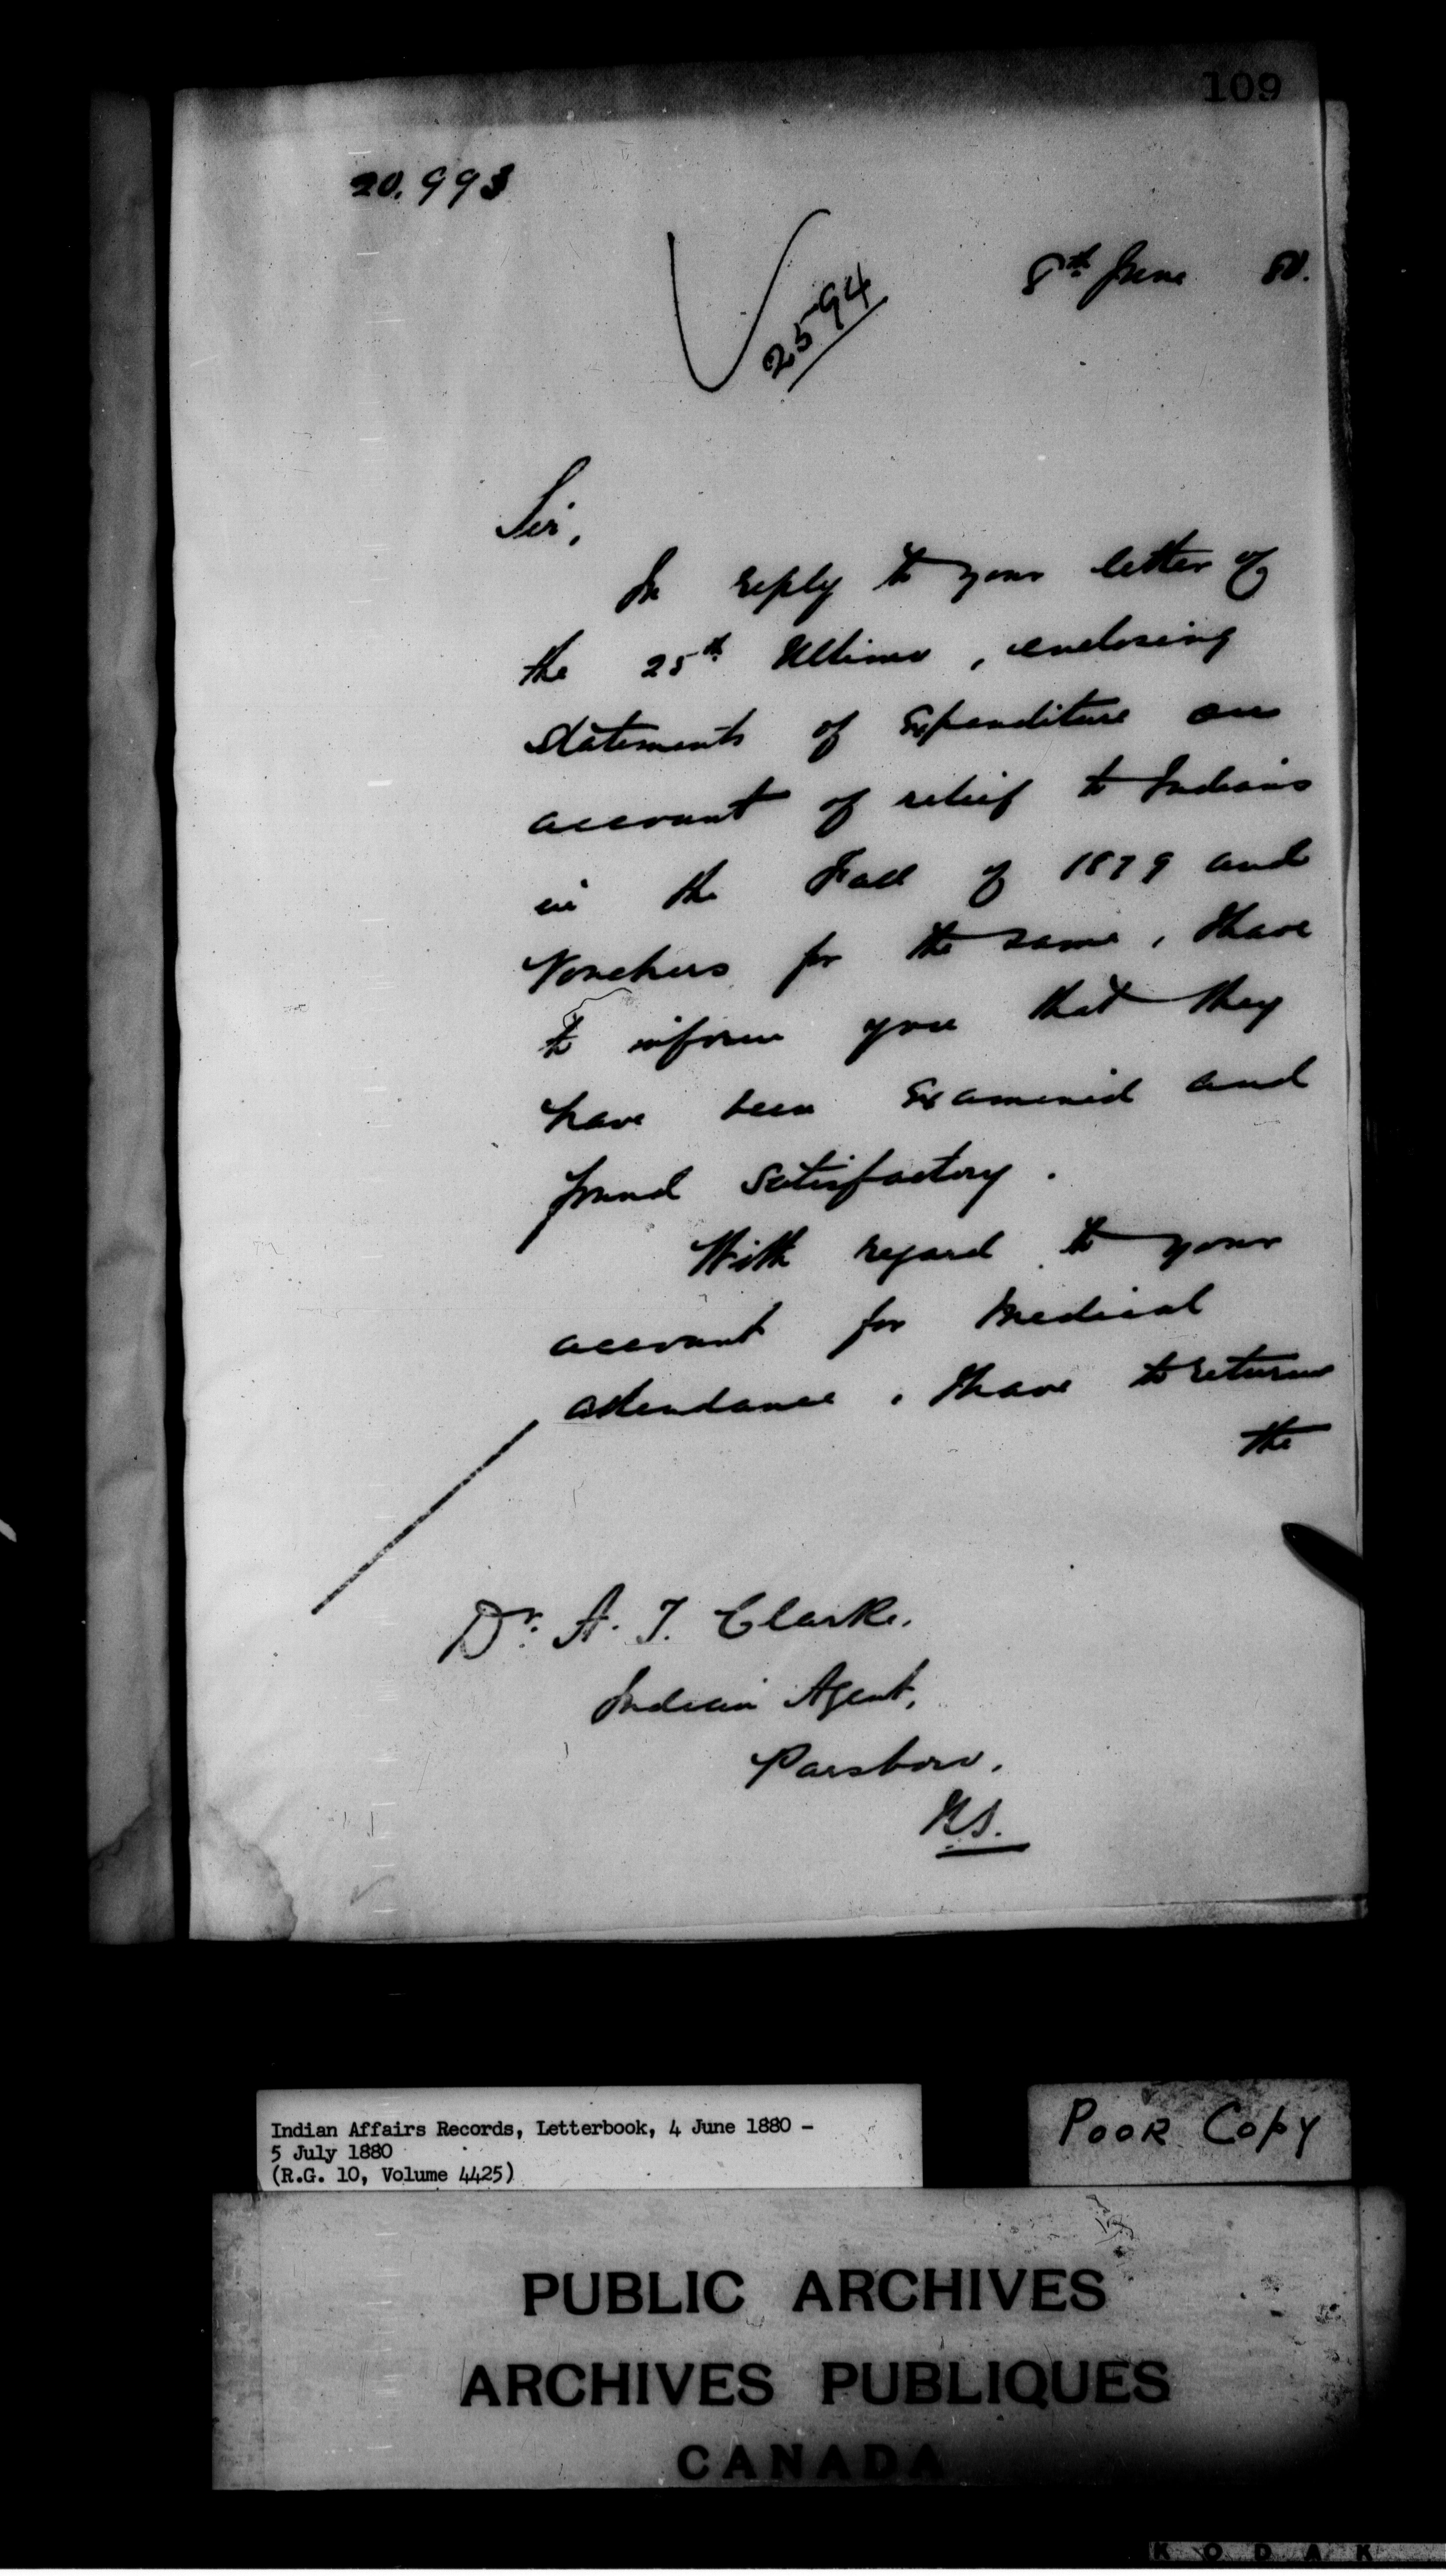 109
20,993
8th June 80.
2594
Sir,
In reply to your letter of
the 25th Ultimo, enclosing
statements of Expenditure on
account of relief to Indians
in the Fall of 1879 and
Vouchers for the same, I have
to inform you that they
have been Examined and
found satisfactory.
With regard to your
account for Medical
attendance, I have to return
the
Dr. A. T. Clarke.
Indian Agent,
Parsboro.
N.S.
Indian Affairs Records, Letterbook, 4 June 1880 -
5 July 1880
(R.G. 10, Volume 4425)
POOR Copy
PUBLIC ARCHIVES
ARCHIVES PUBLIQUES
CANADA
KODAK